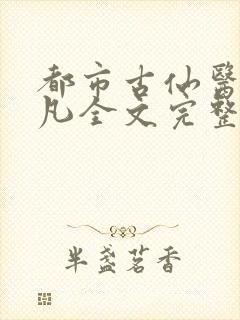 都市古仙醫
凡全文完整
半盞茗香